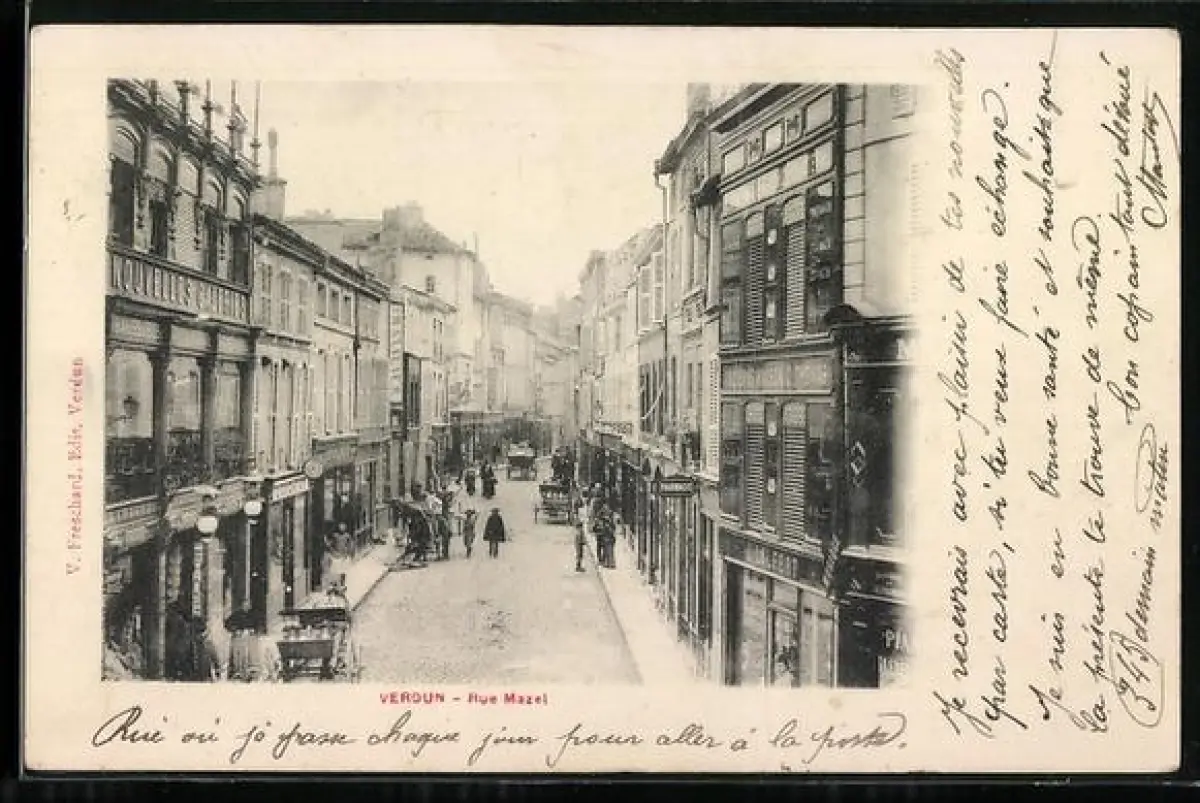 NOUVELLES GALERIES
V. Freschard, Edit. Verdun
VERDUN - Rue Mazel
Rue où je passe chaque jour pour aller à la poste.
Je recevrais avec plaisir de tes nouvelles
par carte, si tu veux faire échange.
Je suis en bonne santé et souhaite que
la présente te trouve de même
Ton copain tout dévoué
343 demain matin